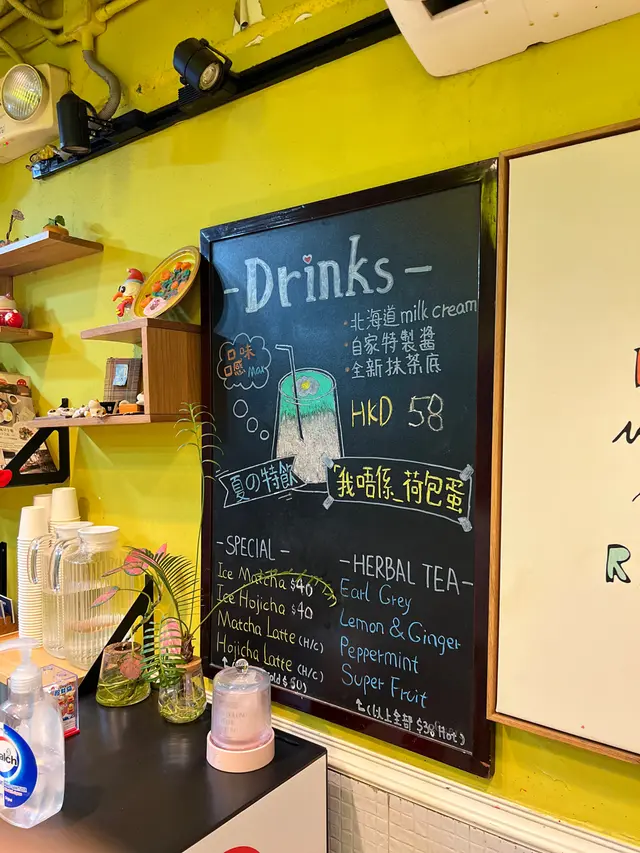 -Drinks-
·北海道milk cream
·自家特製醬
·全新抹茶底
口味
口感 Max
HKD 58
夏の特飲
「我唔係_荷包蛋
-SPECIAL-
Ice Matcha $40
Ice Hojicha $40
Matcha Latte (H/C)
Hojicha Latte (H/C)
old $50)
-HERBAL TEA-
Earl Grey
Lemon & Ginger
Peppermint
Super Fruit
↑(以上全部 $38 Hot)
R
alch